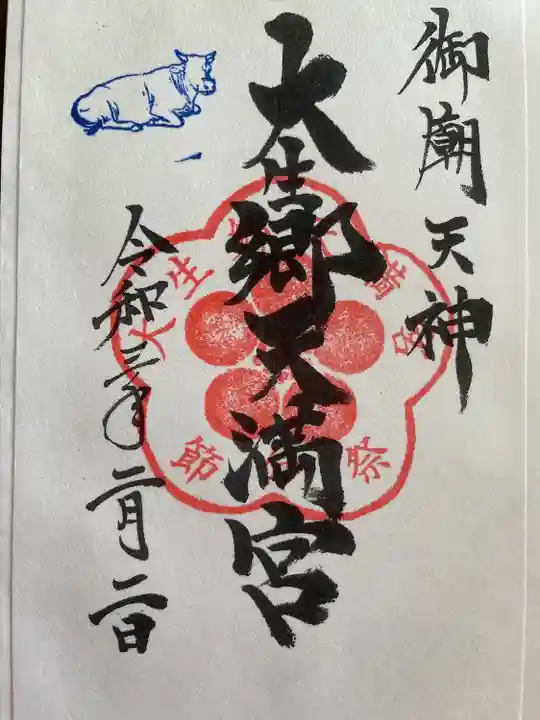 御廟天神
大生郷天満宮
令和三年二月二日
大生郷天満宮
節祭